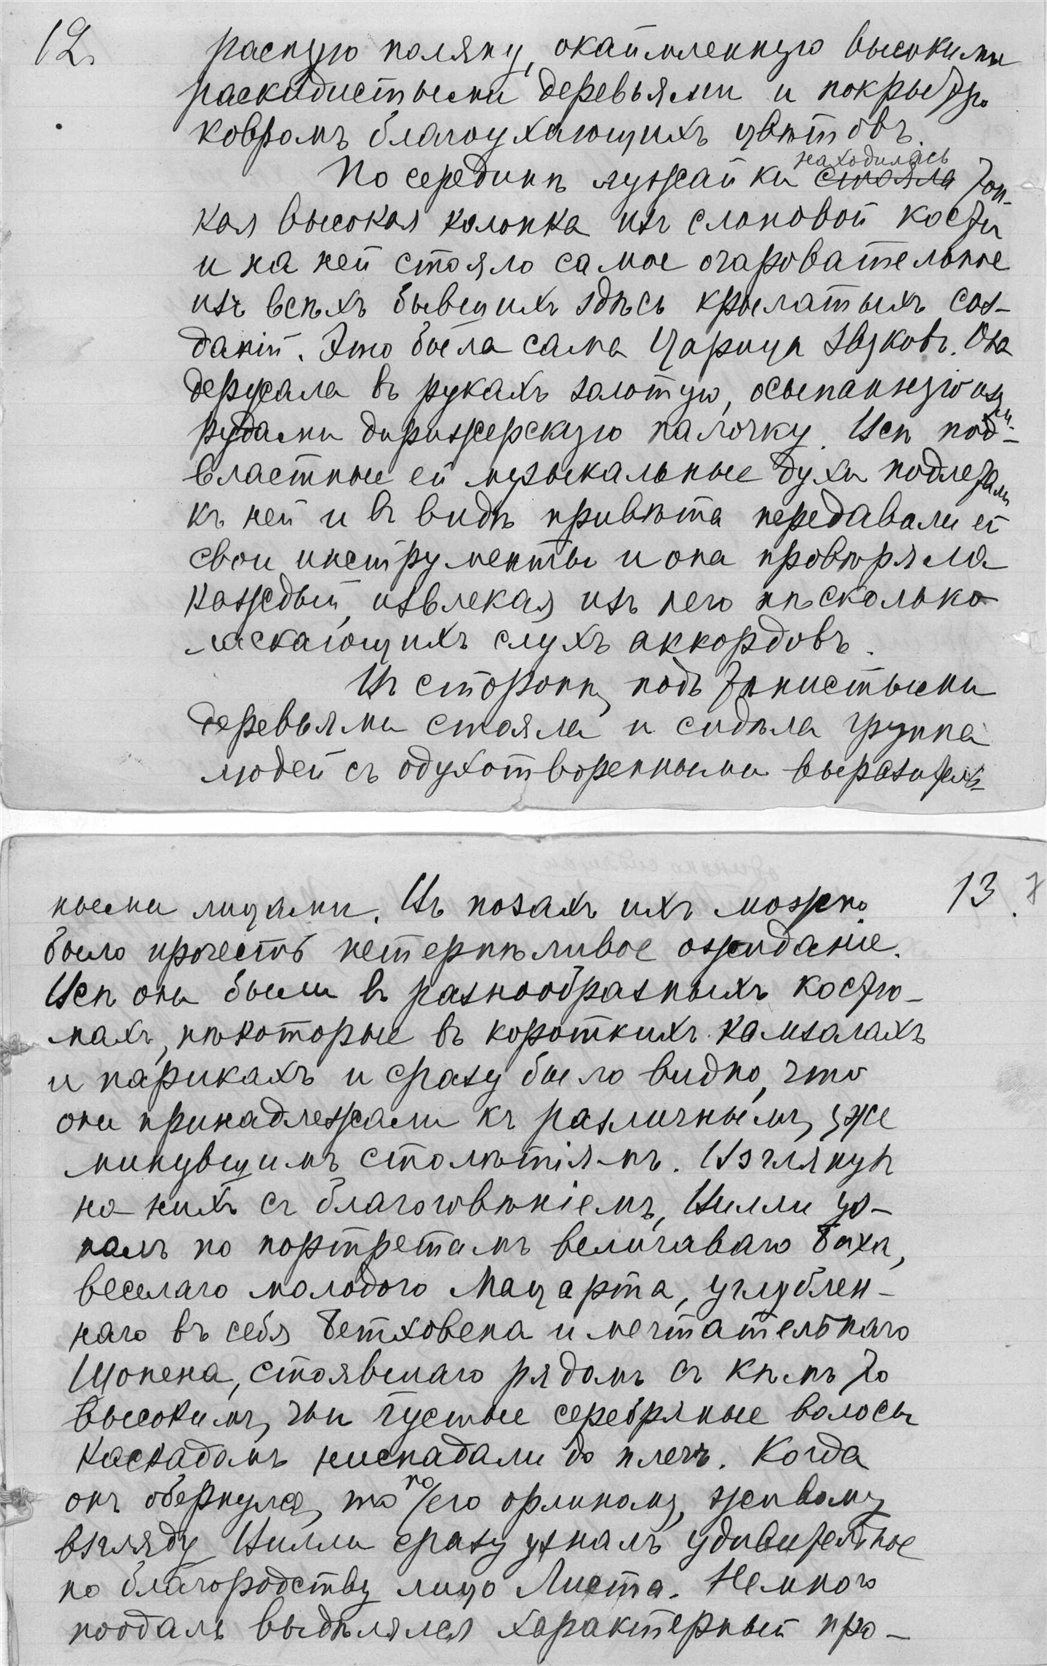 12.
расную поляну, окаймленную высокими
раскидистыми деревьями и покрытую
ковромъ благоухающихъ цвѣтовъ.
По серединѣ лужайки находилась стояла тон-
кая высокая колонка изъ слоновой кости
и на ней стояло самое очаровательное
изъ всѣхъ бывшихъ здѣсь крылатыхъ соз-
даній. Это была сама Царица Звуковъ. Она
держала въ рукахъ золотую, осыпанную изум-
рудами дирижерскую палочку. Всѣ под-
властные ей музыкальные духи подлетали
къ ней и въ видѣ привѣта передавали ей
свои инструменты и она провѣряла
каждый, извлекая изъ него нѣсколько
ласкающихъ слухъ аккордовъ.
Въ сторонѣ, подъ тѣнистыми
деревьями стояла и сидѣла группа
людей съ одухотворенными выразитель-
13.
ными лицами. Въ позахъ ихъ можно
было прочесть нетерпѣливое ожиданіе.
Всѣ они были въ разнообразныхъ костю-
махъ, нѣкоторые въ короткихъ камзолахъ
и парикахъ и сразу было видно, что
они принадлежали къ различнымъ, уже
минувшимъ столѣтіямъ. Взглянув
на нихъ съ благоговѣніемъ, Вилли уз-
налъ по портретамъ величаваго Баха,
веселаго молодого Моцарта, углублен-
наго въ себя Бетховена и мечтательнаго
Шопена, стоявшаго рядомъ съ кѣмъ то
высокимъ, чьи густые серебряные волосы
каскадомъ ниспадали до плечъ. Когда
онъ обернулся, то по его орлиному, живому
взгляду Вилли сразу узналъ удивительное
по благородству лицо Листа. Немного
поодаль выдѣлялся характерный про-